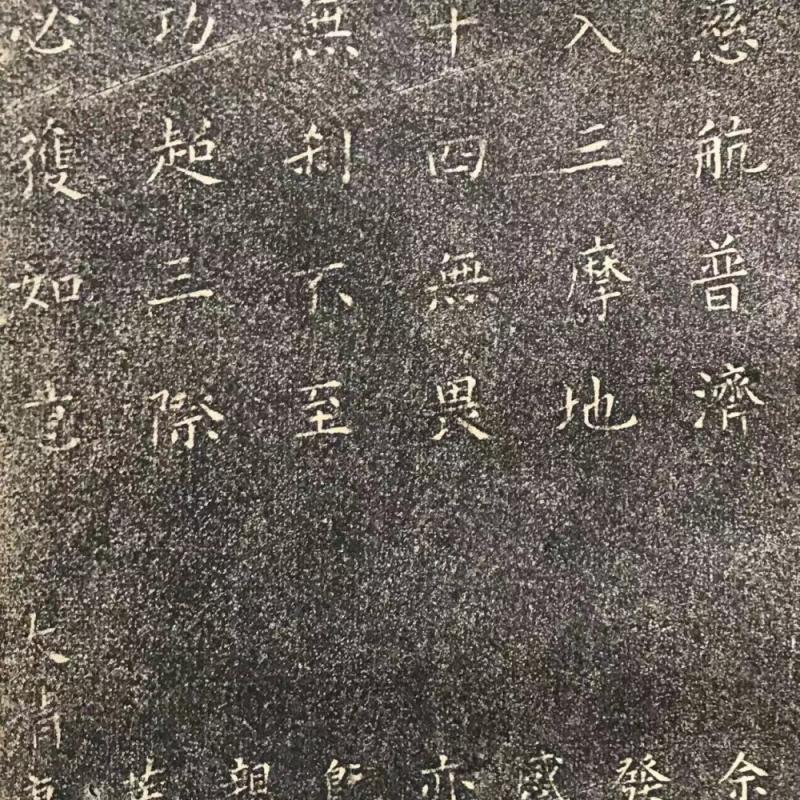 慈航普濟
入三摩地
十四無畏
無刹不至
功超三際
必獲如意
大清
余
發
感
亦
師
親